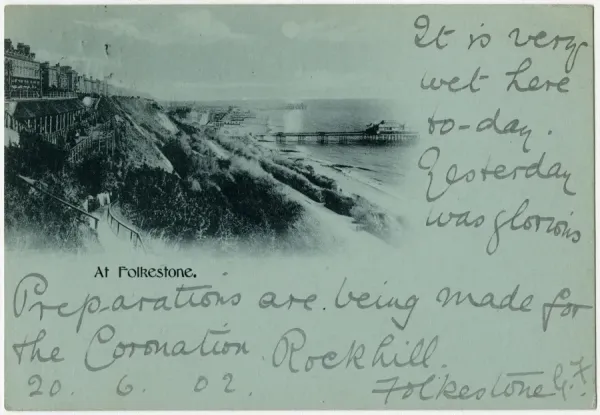 It is very
wet here
to-day.
Yesterday
was glorious
At Folkestone.
Preparations are being made for
the Coronation. Rockhill.
20. 6. 02. Folkestone